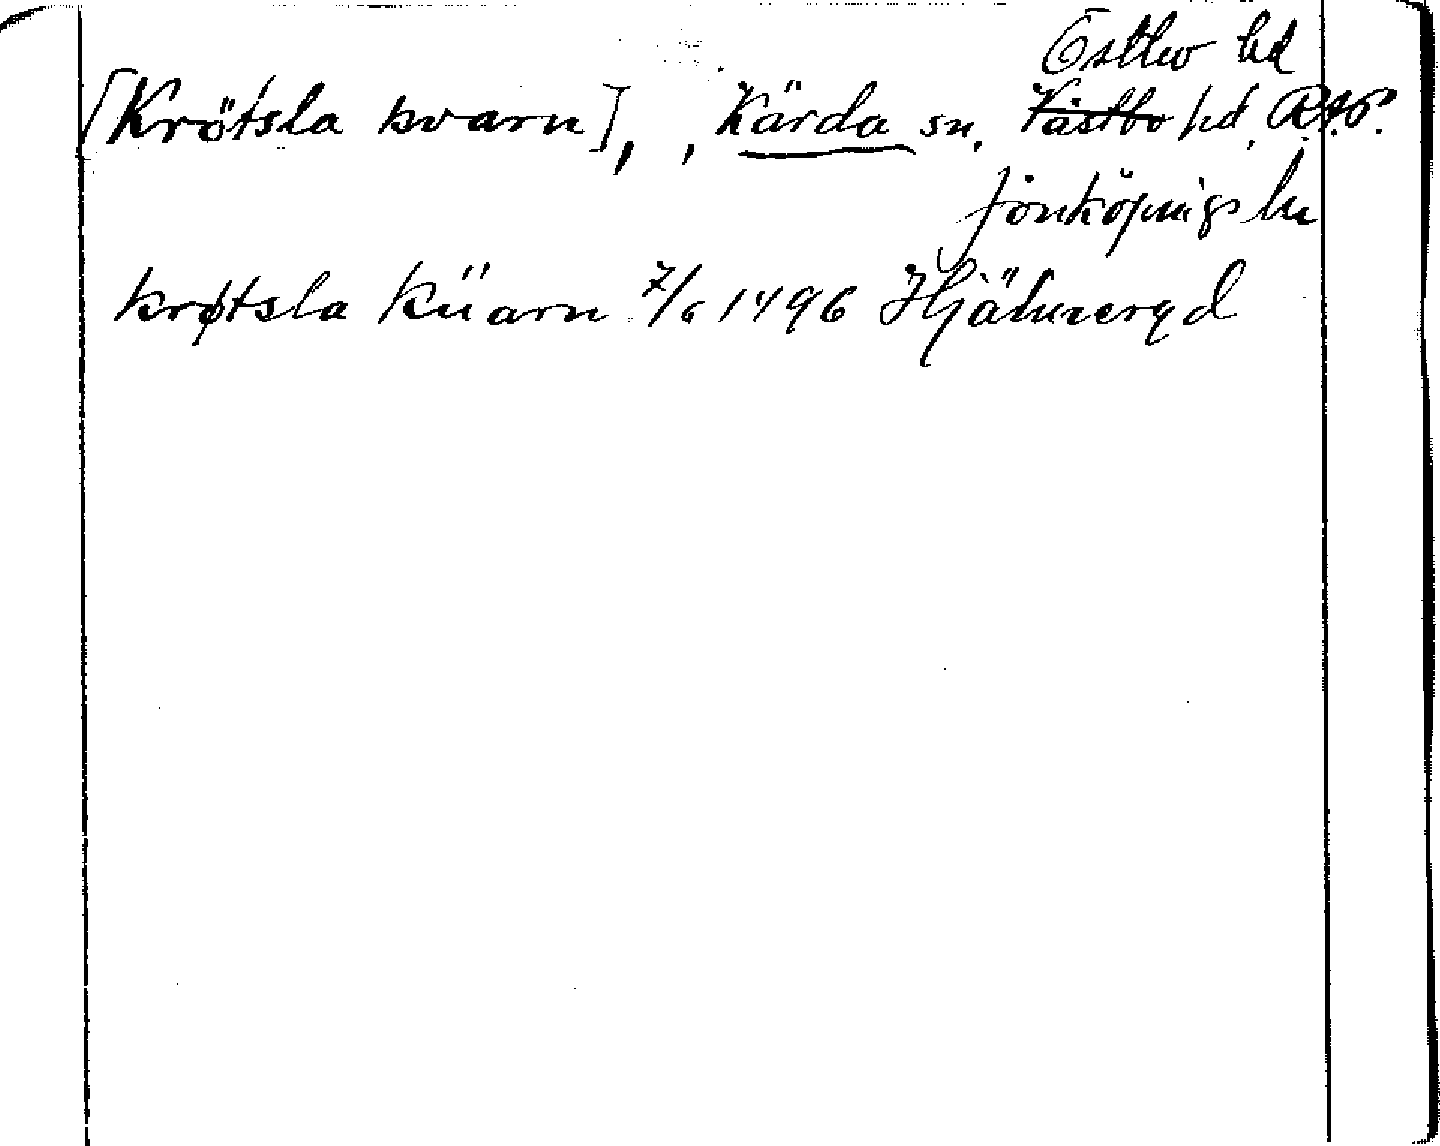 Östbo hd
[Krötsla kvarn], , Kärda sn, Västbo hd, R.A.P.
Jönköpings län
krøtsla küarn 7/6 1496 Hjälmeryd